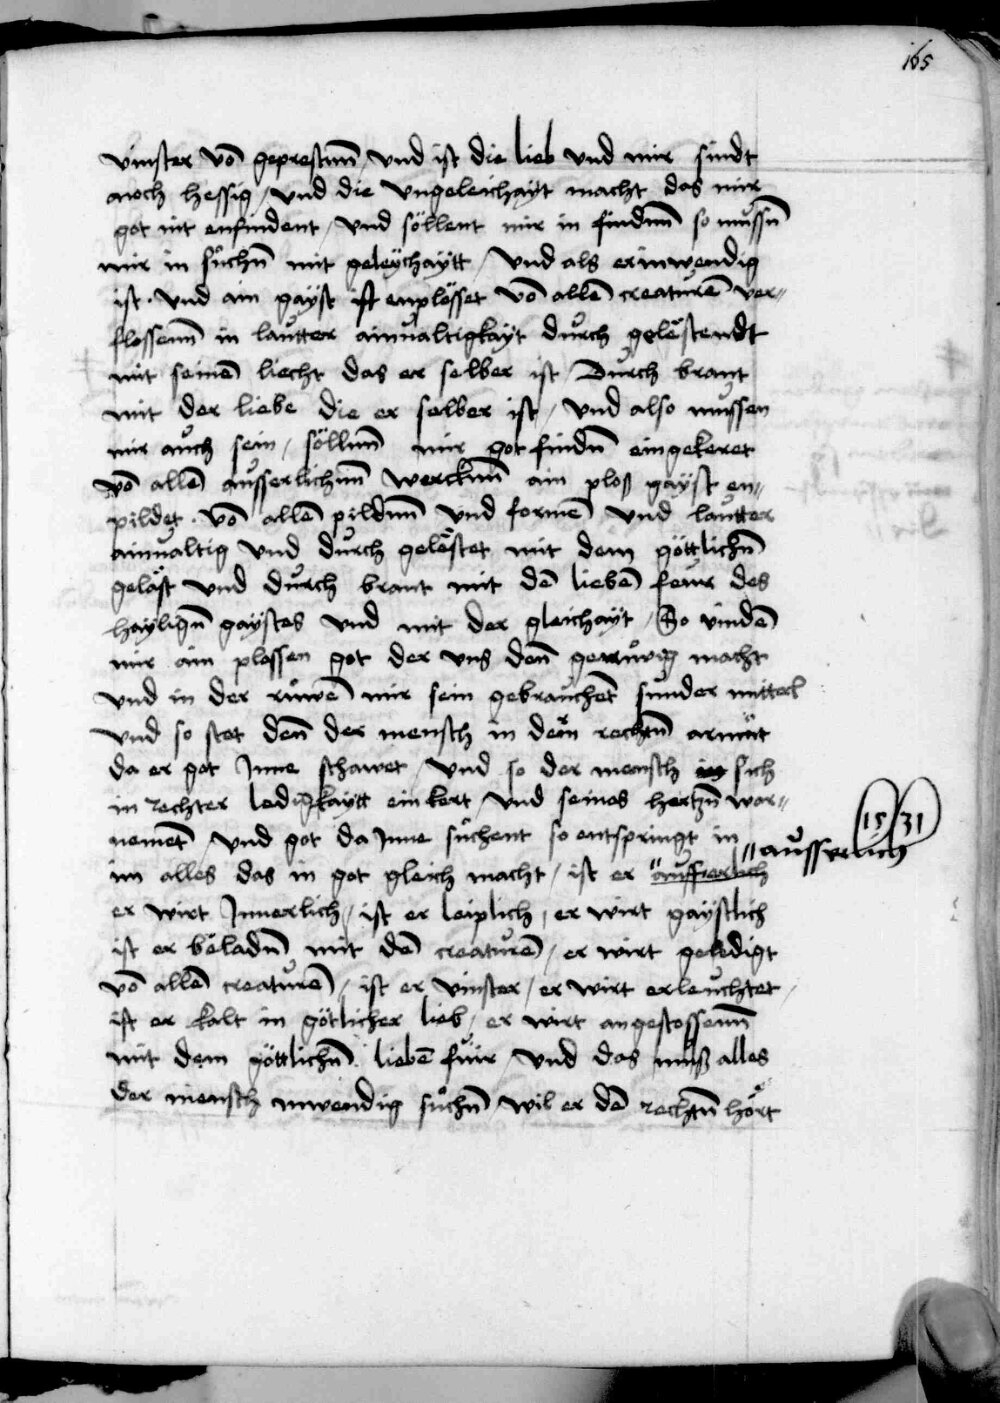 165
vinster võ geprestnn / vnd ist die lieb vnd mir sindt
noch hessig / vnd die vngeleichayt macht das mir
got nit enfindent / vnd söllent mir in findnn so mussn̄
mir in sůchn̄ mit geleychaytt / vnd als er inwendig
ist · vnd ain gayst ist enplösset võ allẽ creaturẽ ver„
flossenn in lautter ainualtigkayt durch gelestendt
mit seinẽ liecht das er selber ist / Durch brant
mit der liebe die er selber ist / vnd also mussen
mir auch sein / söllnn mir got findn̄ eingekeret
võ allẽ ausserlichnn wercknn ain ploß gayst en„
pildet · võ allẽ pildnn vnd formẽ vnd lautter
ainualtig vnd durch gelestet mit dem göttlichn̄
geläst vnd durch brant mit dẽ liebẽ feur des
haylign̄ gaystes vnd mit der gleichayt / So vindẽ
mir ain plossen got der vns deñ geruwig macht
vnd in der růwẽ mir sein gebrauchet sunder mitterl
vnd so stet deñ der mensch in dem rechtn̄ armůt
da er got Jnne schawet / vnd so der mensch in sich
in rechter ledigkaytt ein kert / vnd seines hertzn̄ wor„
nemet / vnd got da Jnne sůchent so entspringt in
im alles das in got gleich macht / ist er ausserlich
„ ausserlich
15 31
er wirt Jnnerlich / ist er leiplich / er wirt gaystlich
ist er beladn̄ mit dẽ creaturẽ / er wirt geledigt
võ allẽ creaturẽ / ist er vinster / er wirt erleuchtet /
ist er kalt in götlicher lieb / er wirt angestossenn
mit dem göttlichn̄ liebẽ fuir / vnd das můß alles
der mensch inwendig sůchn̄ wil er dẽ rechtn̄ hört